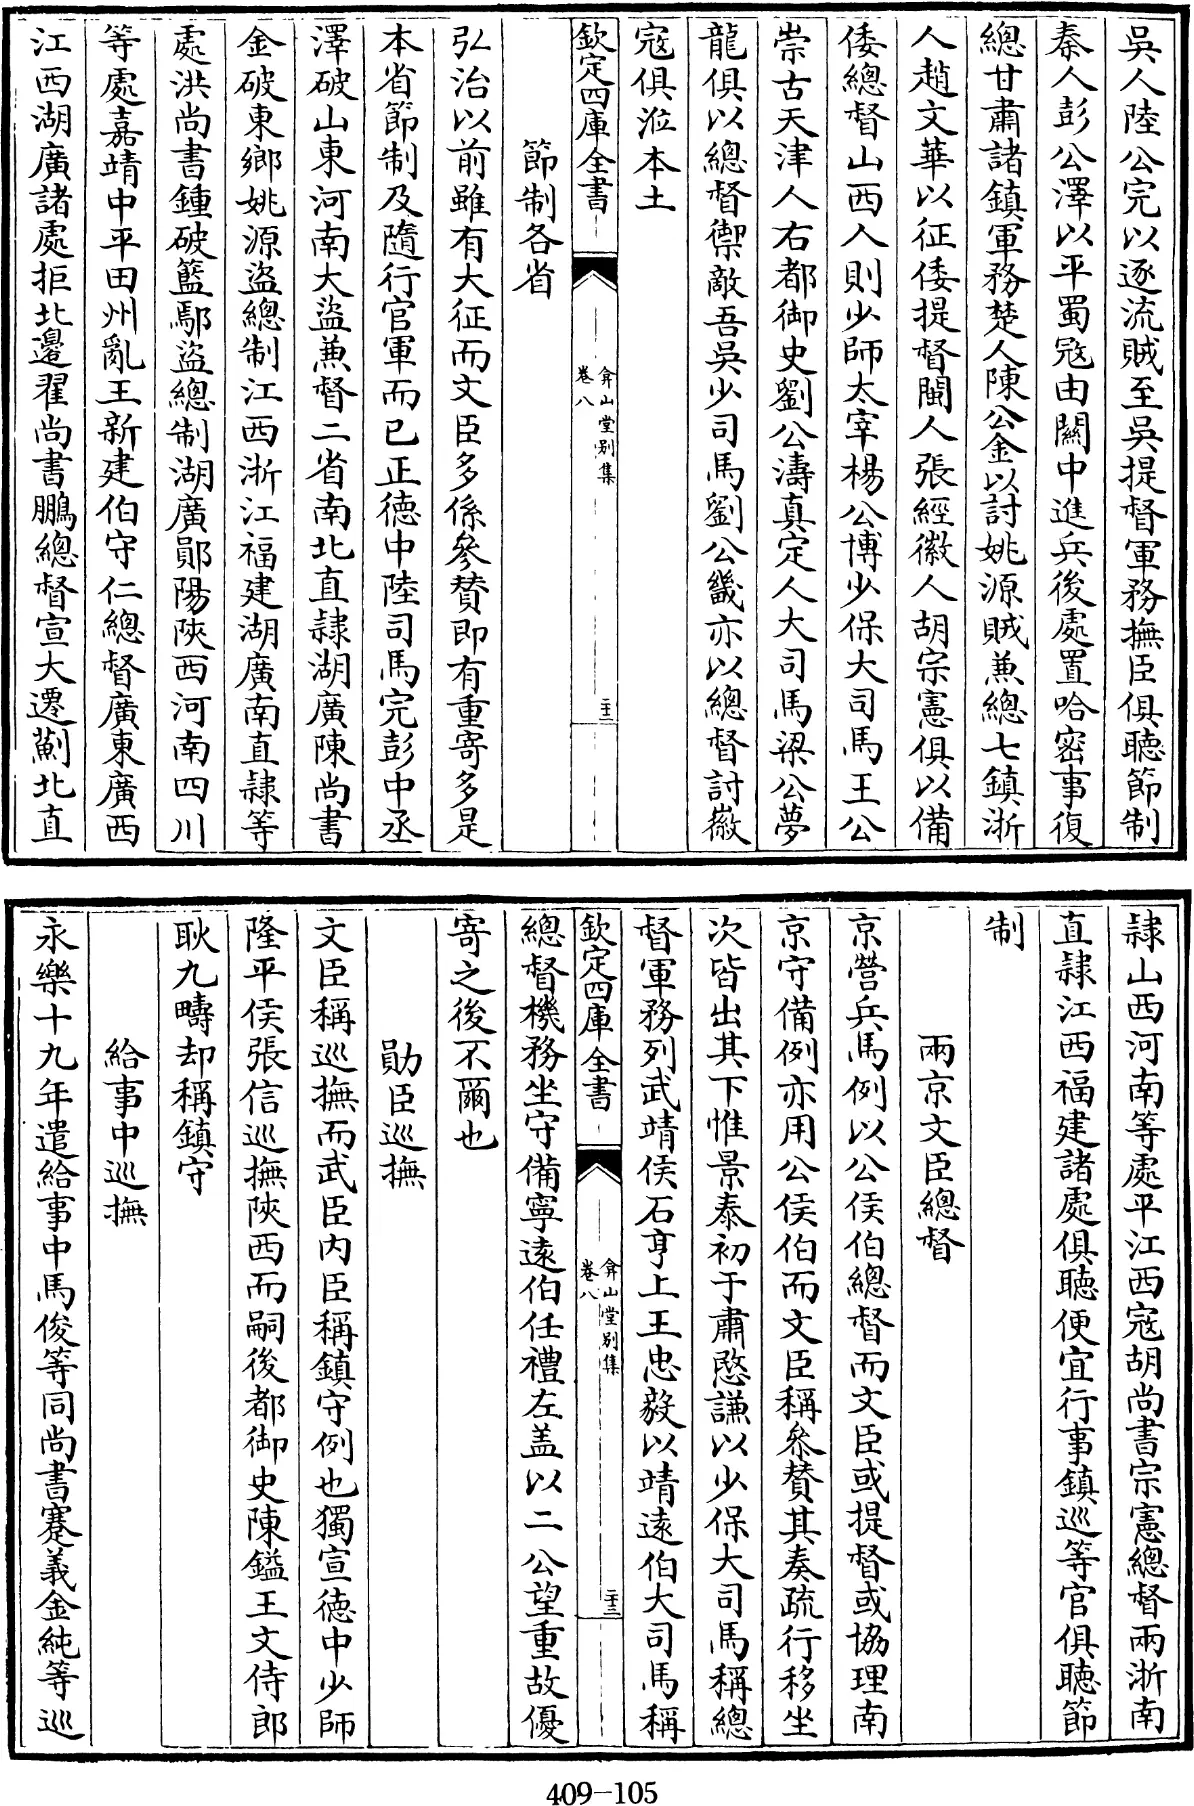 吳人陸公完以逐流賊至吳提督軍務撫臣俱聽節制
秦人彭公澤以平蜀寇由關中進兵後處置哈密事復
總甘肅諸鎮軍務楚人陳公金以討姚源賊兼總七鎮浙
人趙文華以征倭提督閩人張經徽人胡宗憲俱以備
倭總督山西人則少師太宰楊公博少保大司馬王公
崇古天津人右都御史劉公濤真定人大司馬梁公夢
龍俱以總督禦敵吾吳少司馬劉公畿亦以總督討徽
寇俱涖本土
欽定四庫全書
弇山堂別集
卷八
二十二
節制各省
弘治以前雖有大征而文臣多係參賛即有重寄多是
本省節制及隨行官軍而已正德中陸司馬完彭中丞
澤破山東河南大盜兼督二省南北直隸湖廣陳尚書
金破東鄉姚源盜總制江西浙江福建湖廣南直隸等
處洪尚書鍾破籃鄢盜總制湖廣鄖陽陝西河南四川
等處嘉靖中平田州亂王新建伯守仁總督廣東廣西
江西湖廣諸處拒北邊翟尚書鵬總督宣大遷薊北直
隸山西河南等處平江西寇胡尚書宗憲總督兩浙南
直隸江西福建諸處俱聽便宜行事鎮巡等官俱聽節
制
兩京文臣總督
京營兵馬例以公侯伯總督而文臣或提督或協理南
京守備例亦用公侯伯而文臣稱叅賛其奏疏行移坐
次皆出其下惟景泰初于肅愍謙以少保大司馬稱總
督軍務列武靖侯石亨上王忠毅以靖遠伯大司馬稱
欽定四庫全書
弇山堂別集
卷八
二十三
總督機務坐守備寧遠伯任禮左盖以二公望重故優
寄之後不爾也
勛臣巡撫
文臣稱巡撫而武臣内臣稱鎮守例也獨宣德中少師
隆平侯張信巡撫陝西而嗣後都御史陳鎰王文侍郎
耿九疇却稱鎮守
給事中巡撫
永樂十九年遣給事中馬俊等同尚書蹇義金純等巡
409-105